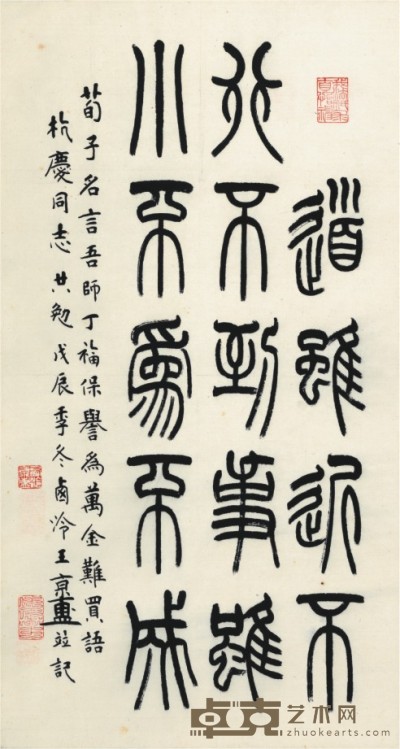 道雖近不
行不到事雖
小不為不成
荀子名言吾師丁福保譽為萬金難買語
杭慶同志共勉戊辰季冬鹵泠王京盙竝記
卓克艺术网
zhuokearts.com